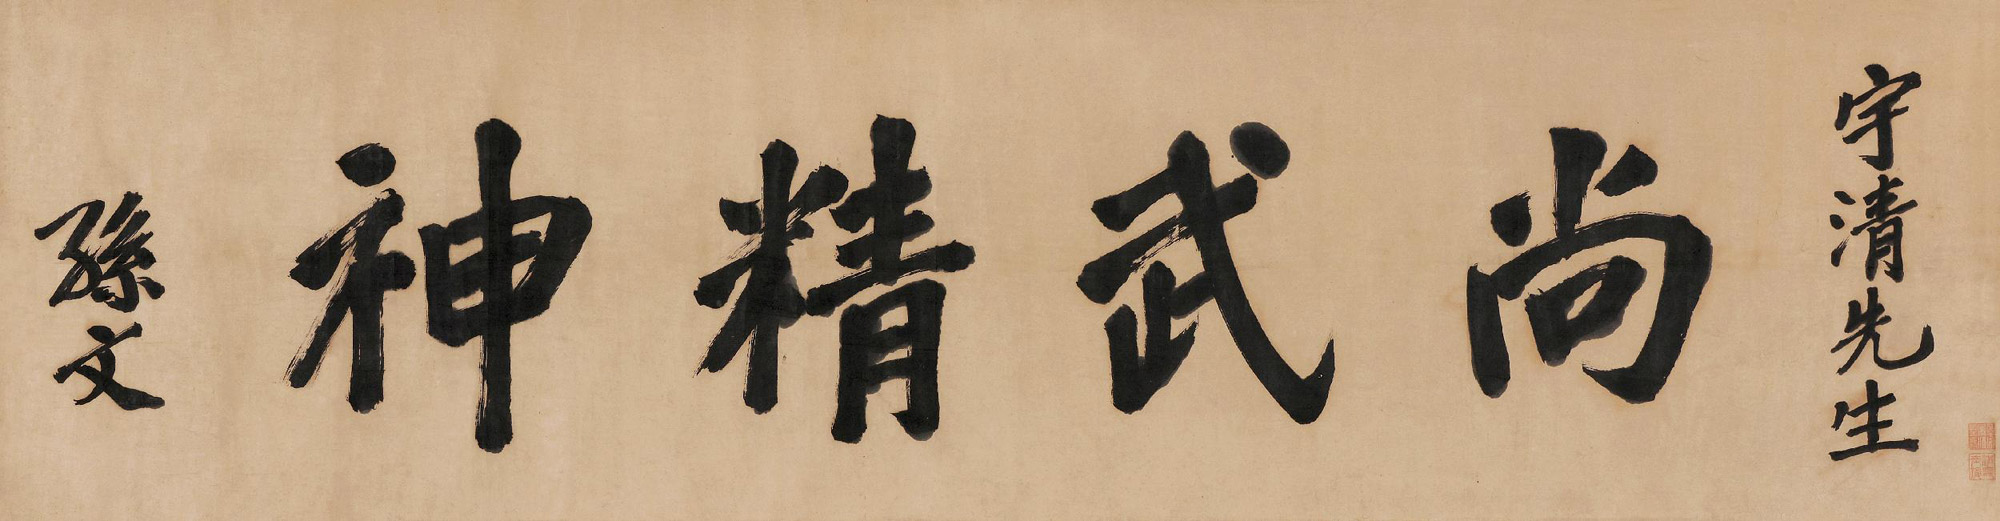 宇清先生
尚武精神
孫文